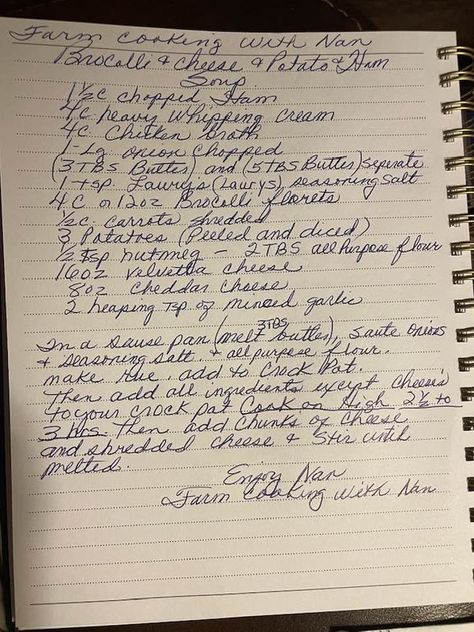 Farm Cooking with Nan
Brocolli & Cheese & Potato & Ham
Soup
1 1/2 C chopped Ham
4 C heavy whipping cream
4 C chicken broth
1-Lg. onion chopped
(3 TBS Butter) and (5 TBS Butter) seperate
1-tsp. Laurys (Laurys) seasoning salt
4 C or 12 oz Brocolli florets
1/2 C. carrots shredded
3 Potatoes (Peeled and diced)
1/2 tsp nutmeg - 2 TBS all Purpose flour
16 oz Velvetta cheese
8 oz cheddar cheese
2 heaping tsp of minced garlic
In a sause pan (melt 3 TBS butter), saute onions
& seasoning salt. & all purpose flour.
make rue. add to Crock Pot.
Then add all ingredients except cheese's
to your crock pot Cook on High 2 1/2 to
3 hrs Then add chunks of cheese
and shredded cheese & stir until
melted.
Enjoy Nan
Farm Cooking with Nan